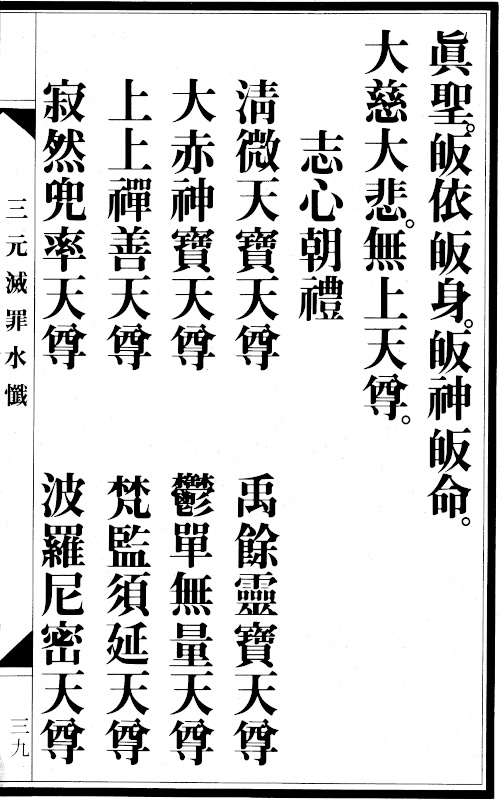 眞聖。皈依皈身。皈神皈命。
大慈大悲。無上天尊。
志心朝禮
清微天寶天尊　禹餘靈寶天尊
大赤神寶天尊　鬱單無量天尊
上上禪善天尊　梵監須延天尊
寂然兜率天尊　波羅尼密天尊
三元滅罪水懺
三九